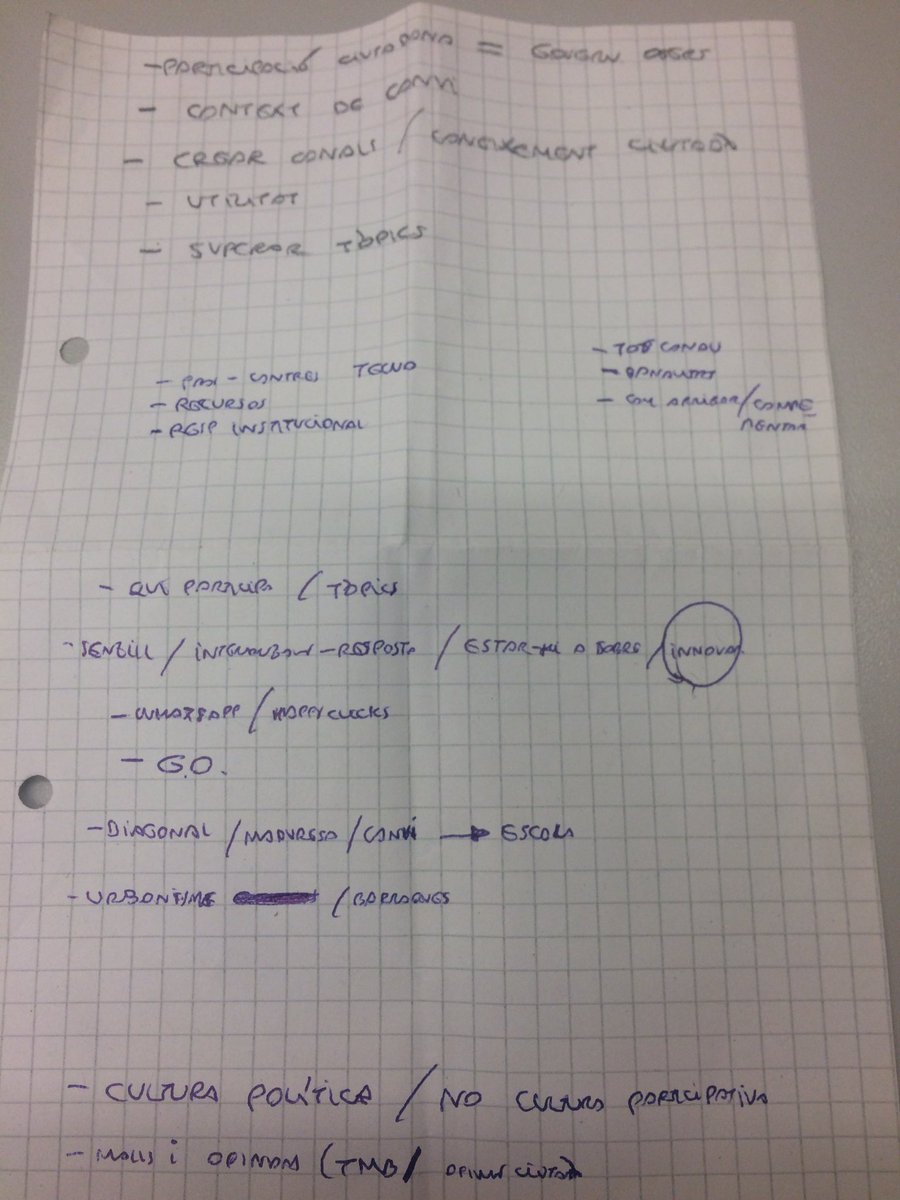 - PARTICIPACIÓ CIUTADANA = GOVERN OBERT
- CONTEXT DE CANVI
- CREAR CANALS / CONEIXEMENT CIUTADÀ
- UTILITAT
- SUPERAR TÒPICS
- PROS - CONTRES TECNO
- RECURSOS
- RESP INSTITUCIONAL
- TOT CANVIA
- COM ARRIBAR / COMPLE
MENTAR
- QUI PARTICIPA / TÒPICS
- SENZILL / - RESPOSTA / ESTAR-HI A SOBRE / INNOVAR
- WHATSAPP / HAPPY CLICKS
- G.O.
- DIAGONAL / MADURESA / CANVI → ESCOLA
- URBANISME / BARRAQUES
- CULTURA POLÍTICA / NO CULTURA PARTICIPATIVA
- MOUS I OPINAS (TMB / CIUTADÀ